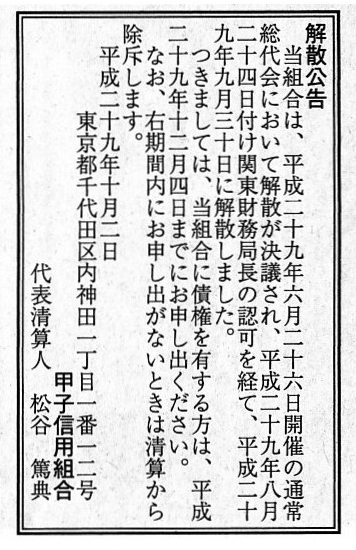 解散公告
当組合は、平成二十九年六月二十六日開催の通常
総代会において解散が決議され、平成二十九年八月
二十四日付け関東財務局長の認可を経て、平成二十
九年九月三十日に解散しました。
つきましては、当組合に債権を有する方は、平成
二十九年十二月四日までにお申し出ください。
なお、右期間内にお申し出がないときは清算から
除斥します。
平成二十九年十月二日
東京都千代田区内神田一丁目一番一二号
甲子信用組合
代表清算人 松谷 篤典